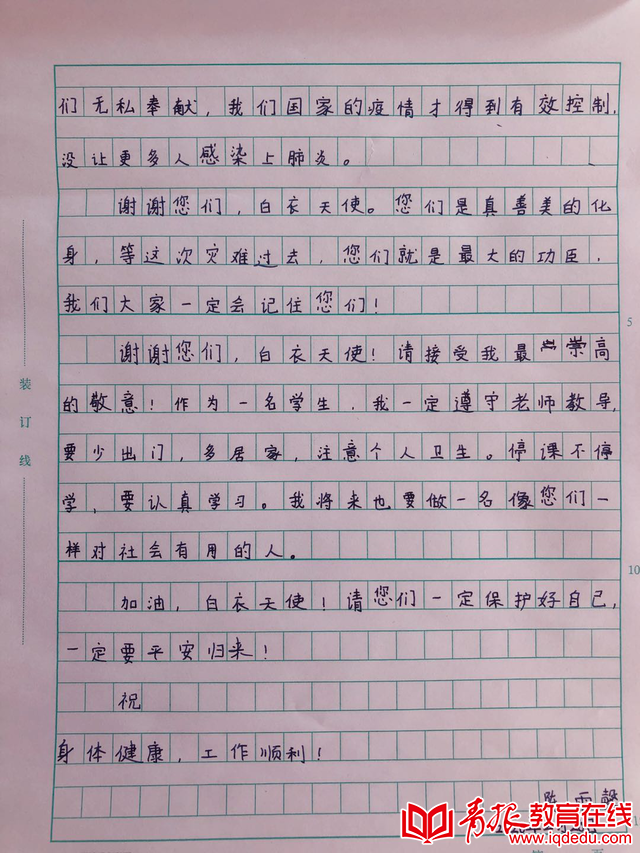 们无私奉献，我们国家的疫情才得到有效控制，
没让更多人感染上肺炎。
谢谢您们，白衣天使。您们是真善美的化
身，等这次灾难过去，您们就是最大的功臣，
我们大家一定会记住您们！
谢谢您们，白衣天使！请接受我最崇高
的敬意！作为一名学生，我一定遵守老师教导，
要少出门，多居家，注意个人卫生。停课不停
学，要认真学习。我将来也要做一名像您们一
样对社会有用的人。
加油，白衣天使！请您们一定保护好自己，
一定要平安归来！
祝
身体健康，工作顺利！
装订线
5
10
青报教育在线
www.iqdedu.com